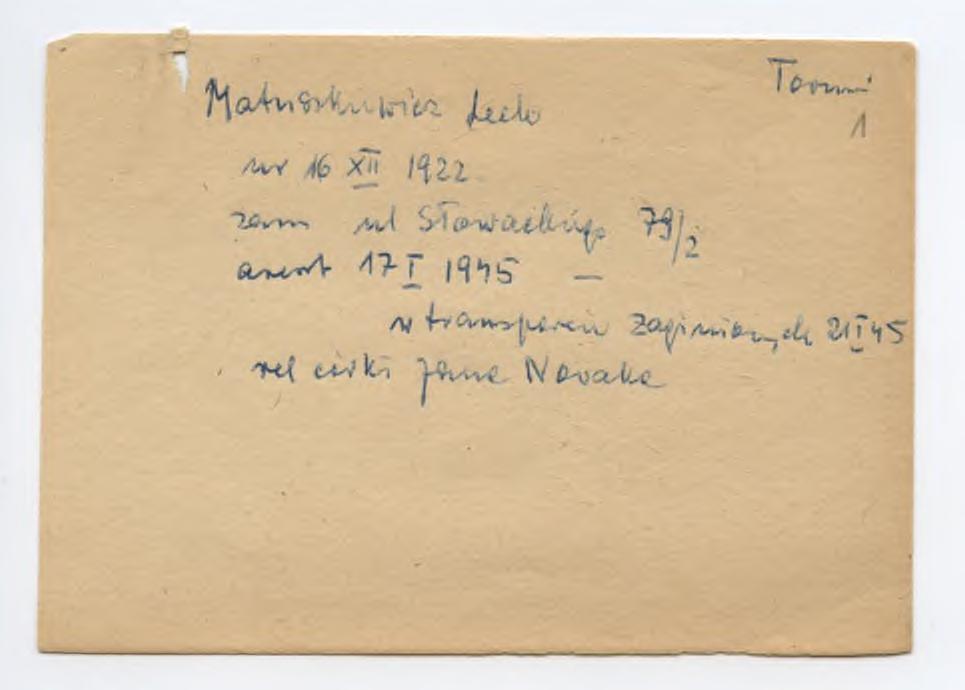 Toruń
1
Matuszkiewicz Lech
ur 16 XII 1922
zam ul Słowackiego 79/2
areszt 17 I 1945 —
w transporcie zaginionych 21 I 45
rel córki Jana Nowaka